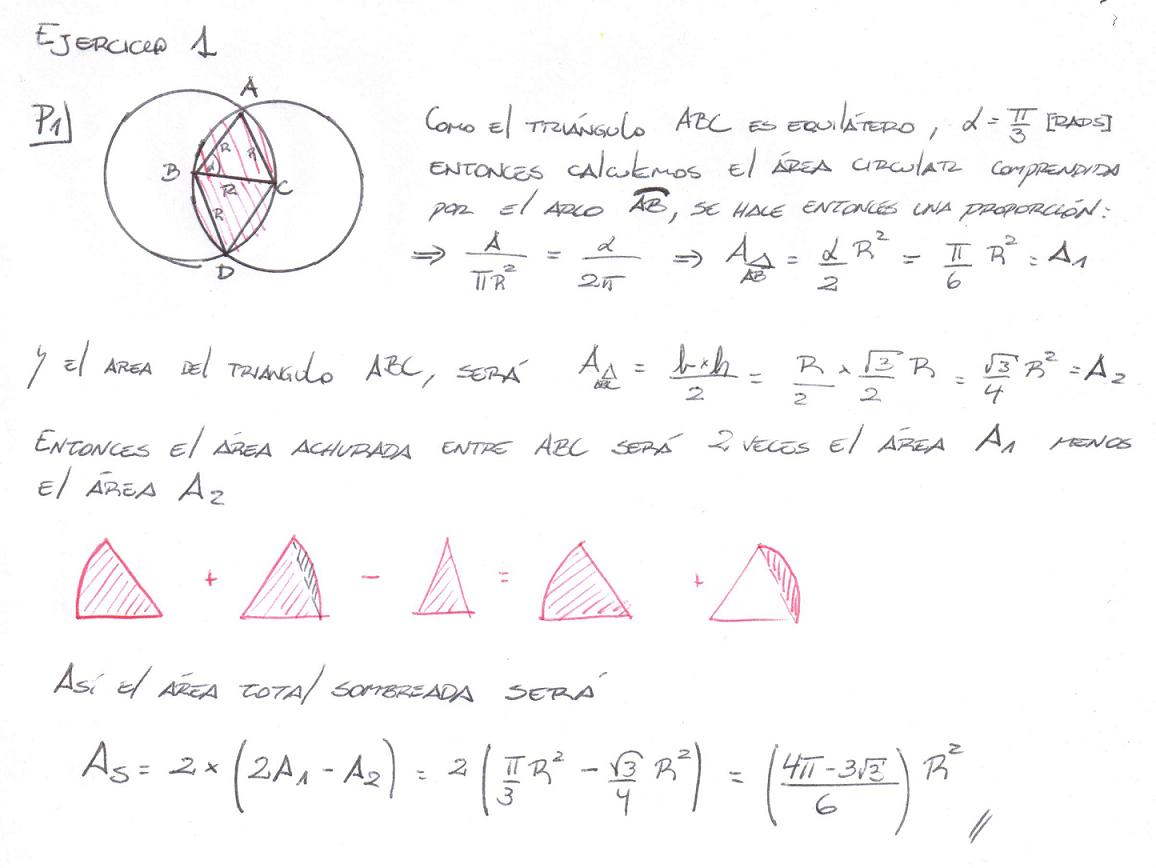 EJERCICIO 1
P1]
A
B
C
D
R
R
R
R
α
COMO El TRIÁNGULO ABC ES EQUILÁTERO, α = π/3 [RADS]
ENTONCES CALCULEMOS El ÁREA CIRCULAR COMPRENDIDA
POR El ARCO AB, SE HACE ENTONCES UNA PROPORCIÓN:
⇒ A/πR² = α/2π ⇒ A△AB = α/2 R² = π/6 R² = A₁
Y El AREA DEL TRIANGULO ABC, SERÁ A△ABC = b×h/2 = R/2 × √3/2 R = √3/4 R² = A₂
ENTONCES El ÁREA ACHURADA ENTRE ABC SERÁ 2 VECES El ÁREA A₁ MENOS
El ÁREA A₂
+ − = +
ASÍ El ÁREA TOTAL SOMBREADA SERÁ
As = 2 × (2A₁ − A₂) = 2 (π/3 R² − √3/4 R²) = (4π−3√3/6) R² //